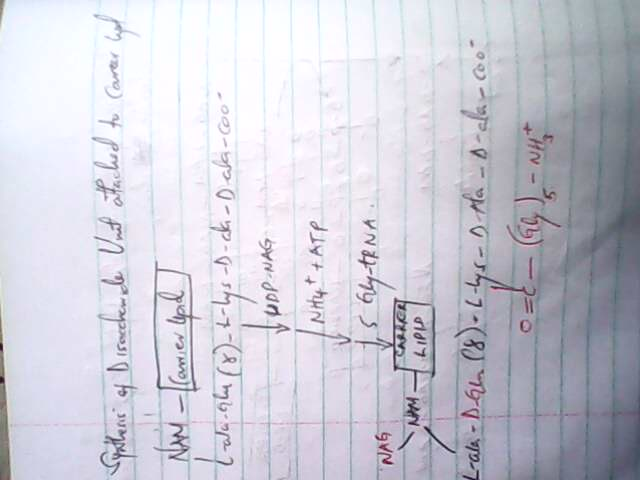 Synthesis of Disaccharide Unit attached to Carrier lipid
NAM - Carrier lipid
L-ala-Glu(γ)-L-Lys-D-ala-D-ala-COO-
↓ UDP-NAG
↓ NH4+ + ATP
↓ 5 Gly-tRNA
NAG
NAM - CARRIER LIPID
L-ala-D-Glu(γ)-L-Lys-D-Ala-D-ala-COO-
O=C-(Gly)5-NH3+